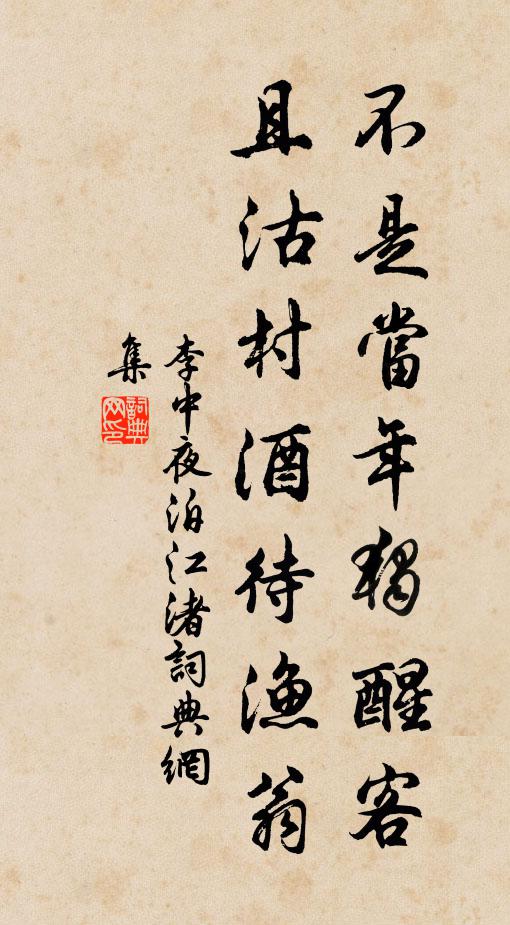 不是當年獨醒客
且沽村酒待漁翁
李中夜泊江渚詞典網
集
詞典网印